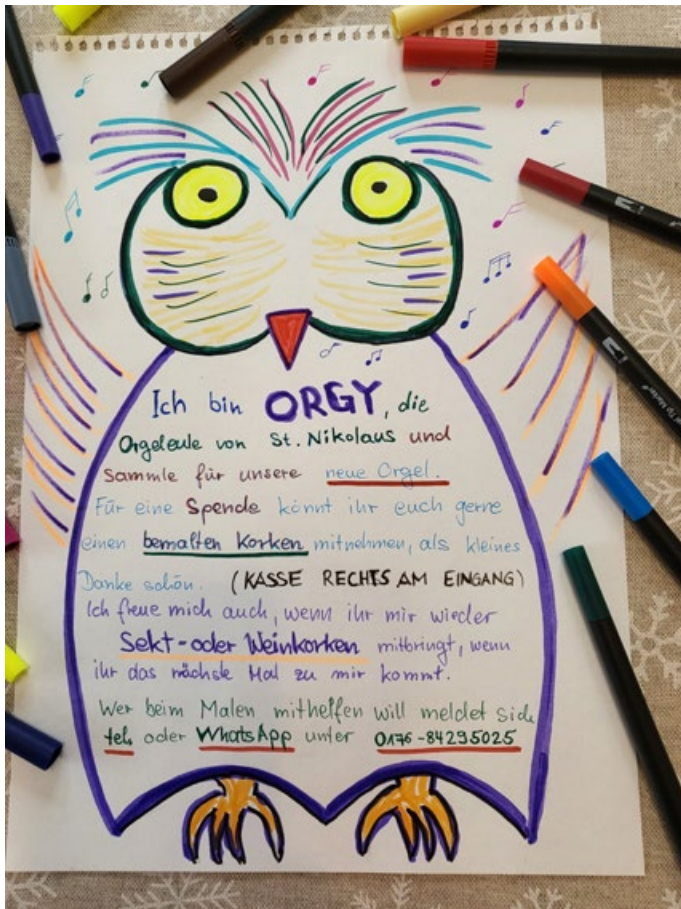 Ich bin ORGY, die
Orgeleule von St. Nikolaus und
sammle für unsere neue Orgel.
Für eine Spende könnt ihr euch gerne
einen bemalten Korken mitnehmen, als kleines
Danke schön. (KASSE RECHTS AM EINGANG)
Ich freue mich auch, wenn ihr mir wieder
Sekt- oder Weinkorken mitbringt, wenn
ihr das nächste Mal zu mir kommt.
Wer beim Malen mithelfen will meldet sich
tel. oder WhatsApp unter 0176-84295025